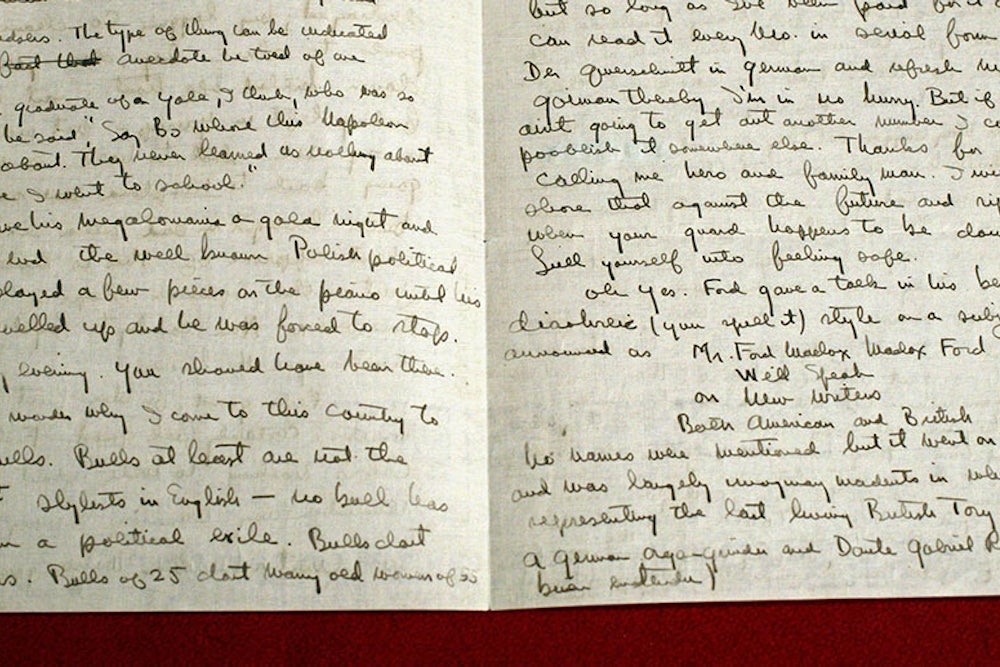 The type of thing can be indicated
fact that anecdote he told of one
graduate of a Yale, I think, who was so
he said, "Say Bo whose this Napoleon
about. They never learned us nothing about
I went to school."
his megalomania a gala night and
the well known Polish political
played a few pieces on the piano until his
welled up and he was forced to stop.
evening. You should have been there.
wonder why I come to this country to
bulls. Bulls at least are not the
stylists in English — no bull has
a political exile. Bulls dont
Bulls of 25 dont marry old women of 55
but so long as I've been paid for it
can read it every mo. in serial form
Der Querschnitt in german and refresh
goiman thereby I'm in no hurry. But if
aint going to get out another number I
pooblish it somewhere else. Thanks for
calling me hero and family man. I
store that against the future and
when your guard happens to be
Lull yourself into feeling safe.
Oh yes. Ford gave a talk in his
(you spell it) style on a
announced as Mr. Ford Madox Madox Ford
Will Speak
on New Writers
Both American and British
No names were mentioned but it went on
and was largely in
representing the last living British Tory
a german and Dante Gabriel